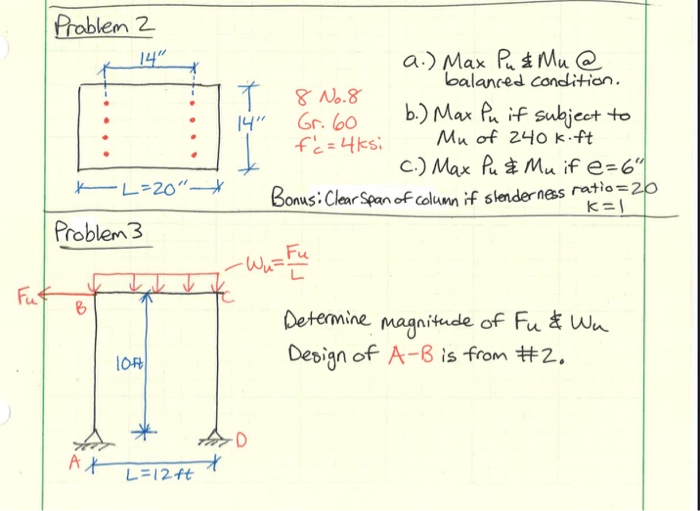 Problem 2
14"
14"
L=20"
8 No.8
Gr. 60
f'c = 4ksi
a.) Max Pu & Mu @
balanced condition.
b.) Max Pu if subject to
Mu of 240 k·ft
c.) Max Pu & Mu if e=6"
Bonus: Clear Span of column if slenderness ratio=20
k=1
Problem 3
Wu=Fu/L
Fu
B
C
10ft
A
D
L=12ft
Determine magnitude of Fu & Wu
Design of A-B is from #2.